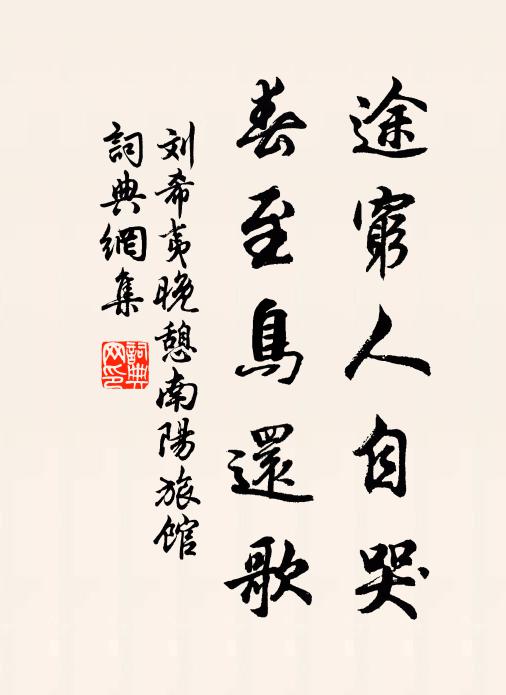 途窮人自哭
春至鳥還歌
刘希夷晚憩南陽旅館
詞典網集
詞典网印